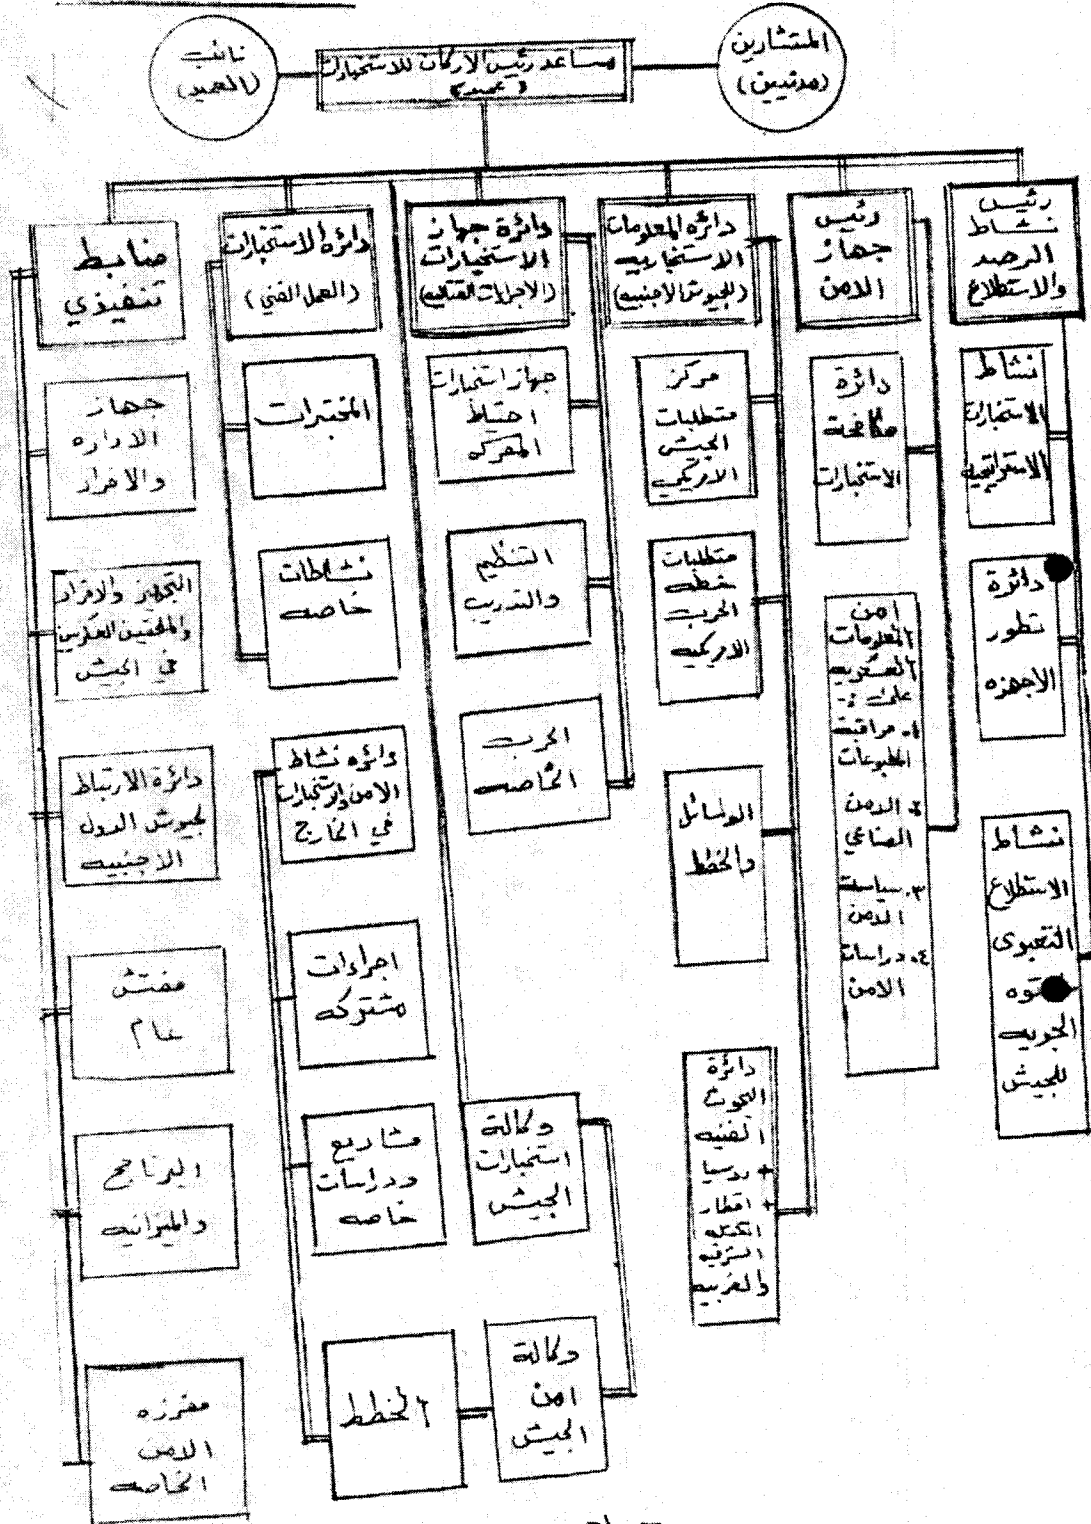 المستشارين
(مدنيين)
مساعد رئيس الاركان للاستخبارات
(عميد)
نائب
(العميد)
رئيس
نشاط
الرصد
والاستطلاع
نشاط
الاستخبارات
الاستراتيجيه
دائرة
تطور
الاجهزه
نشاط
الاستطلاع
التعبوي
الجويه
للجيش
رئيس
جهاز
الامن
دائرة
مكافحة
الاستخبارات
امن
المعلومات
العسكريه
على :-
١. مراقبة
المطبوعات
٢. الامن
الصناعي
٣. سياسة
الامن
٤. دراسات
الامن
دائرة المعلومات
الاستخباريه
(للجيوش الاجنبيه)
مركز
متطلبات
الجيش
الامريكي
متطلبات
خطه
الحرب
الامريكيه
الوسائل
والخطط
دائرة
البحوث
الفنيه
+ روسيا
+ اقطار
الكتله
الشرقيه
والغربيه
دائرة جهاز
الاستخبارات
(الاجراءات القتاليه)
جهاز استخبارات
احتياط
المعركه
التنظيم
والتدريب
الحرب
الخاصه
وكالة
استخبارات
الجيش
وكالة
امن
الجيش
دائرة الاستخبارات
(العمل الفني)
المختبرات
نشاطات
خاصه
دائره نشاط
الامن والاستخبارات
في الخارج
اجراءات
مشتركه
مشاريع
ودراسات
خاصه
الخطط
ضابط
تنفيذي
جهاز
الاداره
والافراد
التجهيز والافراد
والملحقين العسكريين
في الجيش
دائرة الارتباط
لجيوش الدول
الاجنبيه
مفتش
عام
البرنامج
والميزانيه
مفرزه
الامن
الخاصه